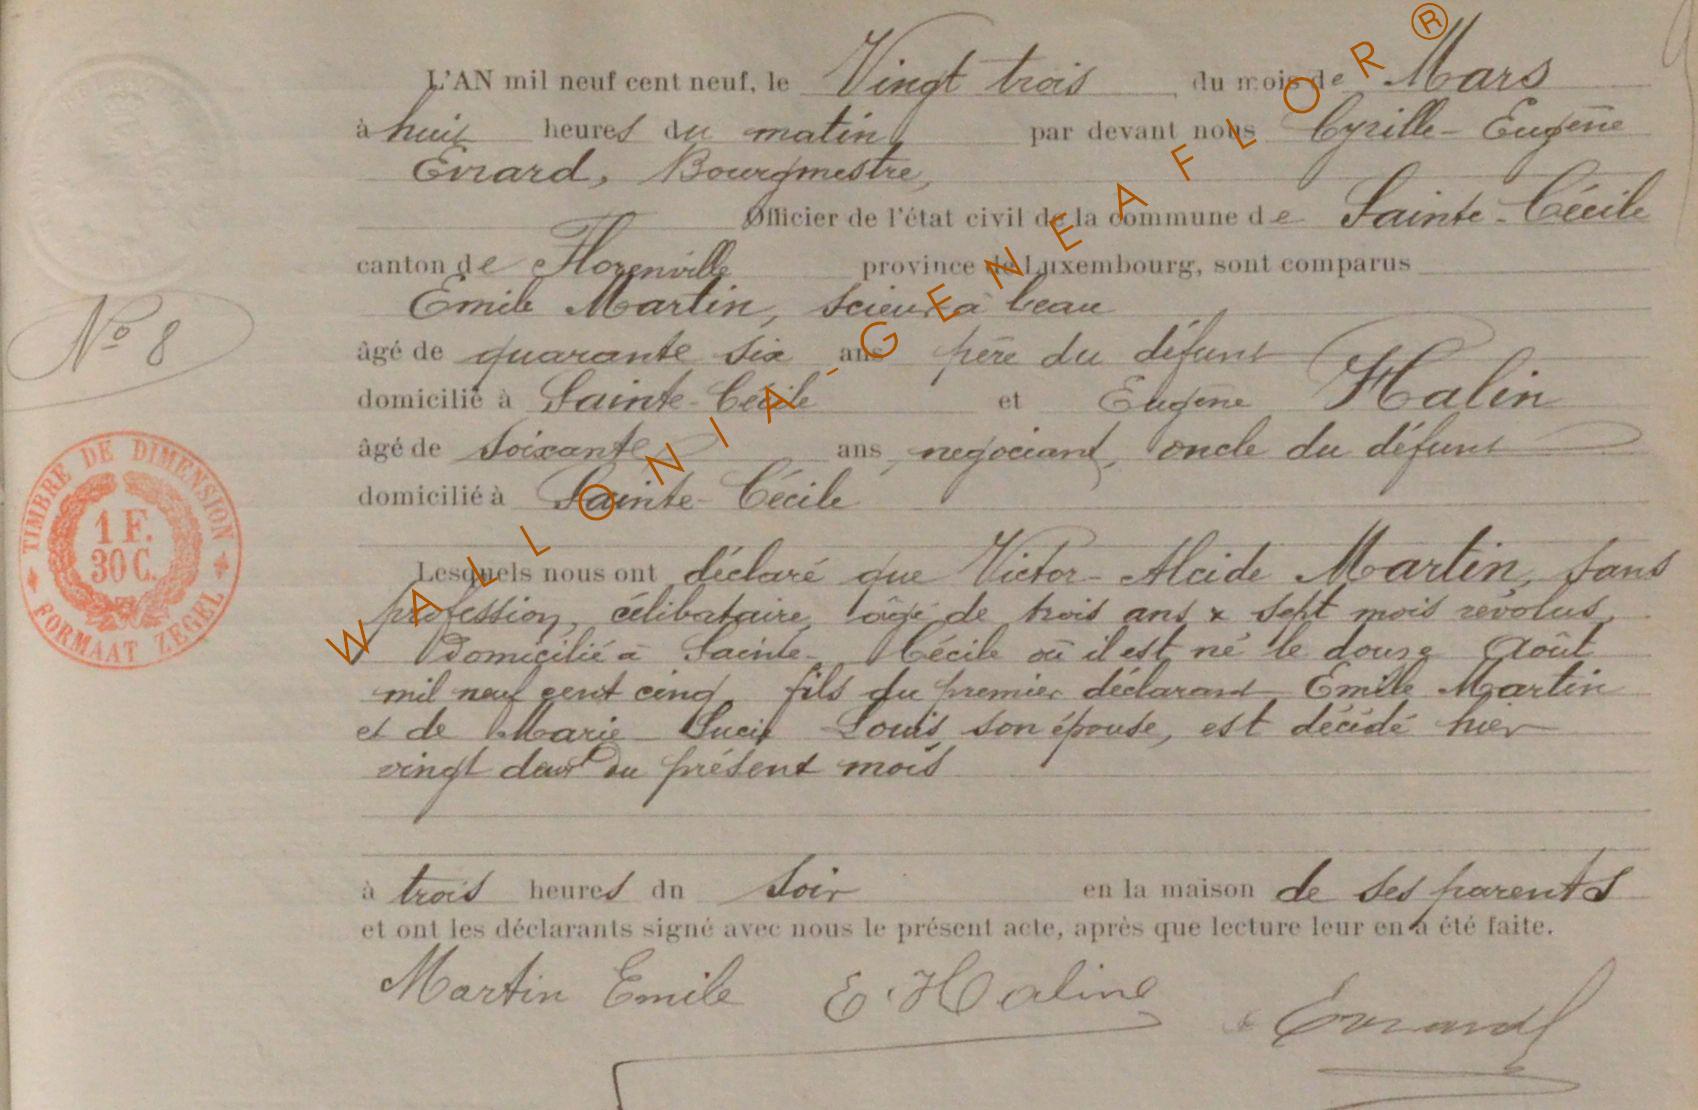 L'AN mil neuf cent neuf, le Vingt trois du mois de Mars
à huit heures du matin, par devant nous Cyrille-Eugène
Evrard, Bourgmestre,
Officier de l'état civil de la commune de Sainte-Cécile
canton de Florenville province de Luxembourg, sont comparus
Emile Martin, scieur à beau
âgé de quarante six ans père du défunt
domicilié à Sainte-Cécile et Eugène Halin
âgé de soixante ans, negociant, oncle du défunt
domicilié à Sainte-Cécile
Lesquels nous ont déclaré que Victor-Alcide Martin, sans
profession, célibataire, âgé de trois ans & sept mois révolus,
Domicilié à Sainte-Cécile où il est né le douze Août
mil neuf cent cinq, fils du premier déclarant Emile Martin
et de Marie Lucie Louis son épouse, est décédé hier
vingt deux du présent mois
à trois heures du soir en la maison de ses parents
et ont les déclarants signé avec nous le présent acte, après que lecture leur en a été faite.
Martin Emile E. Haline Evrard
No 8
TIMBRE DE DIMENSION
1 F.
30 C.
FORMAAT ZEGEL
WALLONIA-GENEAFLOR®